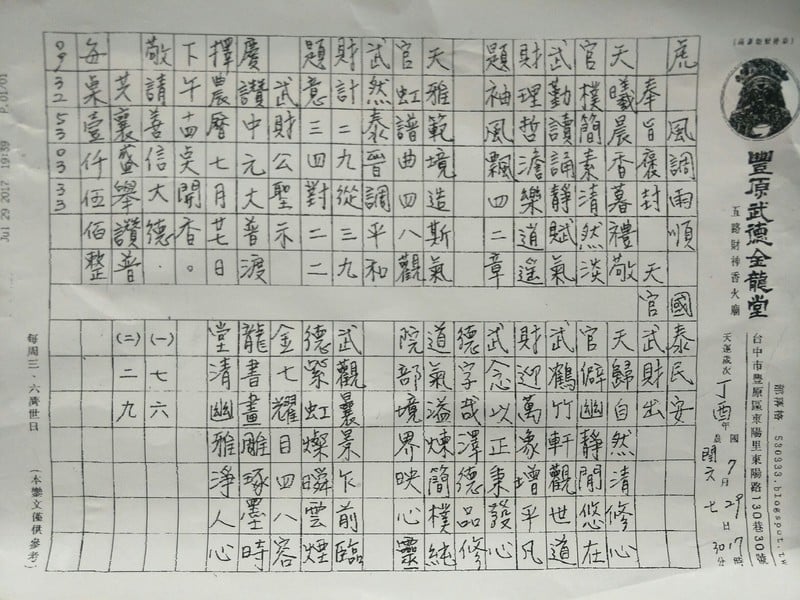 虎 風調雨順 國泰民安
奉旨褒封 天官武財出
天曦晨香暮禮敬
官樸簡素清然淡
武勤讀誦靜賦氣
財理哲澹樂道遙
題袖風飄四二章
天雅範境造斯氣
官虹譜曲四八觀
武然泰晉調平和
財計二九從三九
題意三四對二二
武財公聖示
慶讚中元大普渡
擇農曆七月廿七日
下午十四奌開香。
敬請善信大德.
共襄盛舉讚普
每桌壹仟伍佰整
09 32 53 03 33
天歸自然清修心
官僻幽靜閒悠在
武鶴竹軒觀世道
財迎萬象增平凡
武念以正秉發心
德字哉澤德品修
道氣溢煉簡樸純
院部境界映心靈
武觀襄景乍前臨
德紫虹燦瞬雲煙
金七耀目四八容
龍書畫雕琢墨時
堂清幽雅淨人心
(一) 七六
(二) 二九
豐原武德金龍堂
五路財神香火廟
台中市豐原區東陽里東陽路130巷30號
部落格 530333.blogspot.tw
天運歲次丁酉年
國 7月29日17時30分
每周三、六濟世日
(本鸞文僅供參考)
Jul 29 2017 19:39 P.01/01